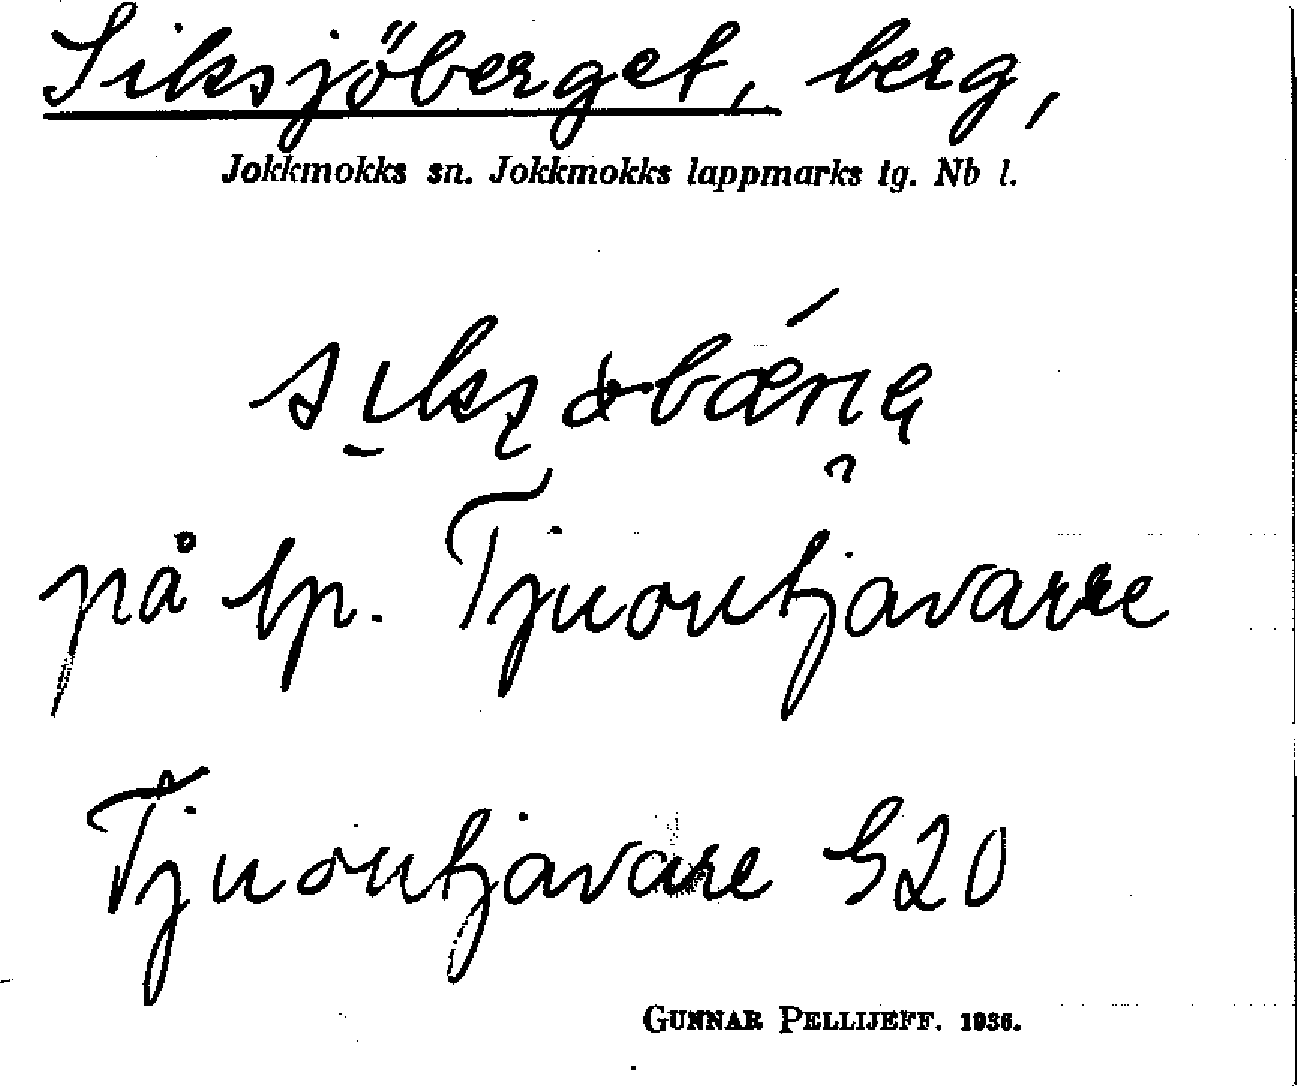 Siksjöberget, berg,
Jokkmokks sn. Jokkmokks lappmarks tg. Nb l.
på lp. Tjuoutjavarre
Tjuoutjavare G20
GUNNAR PELLIJEFF. 1936.